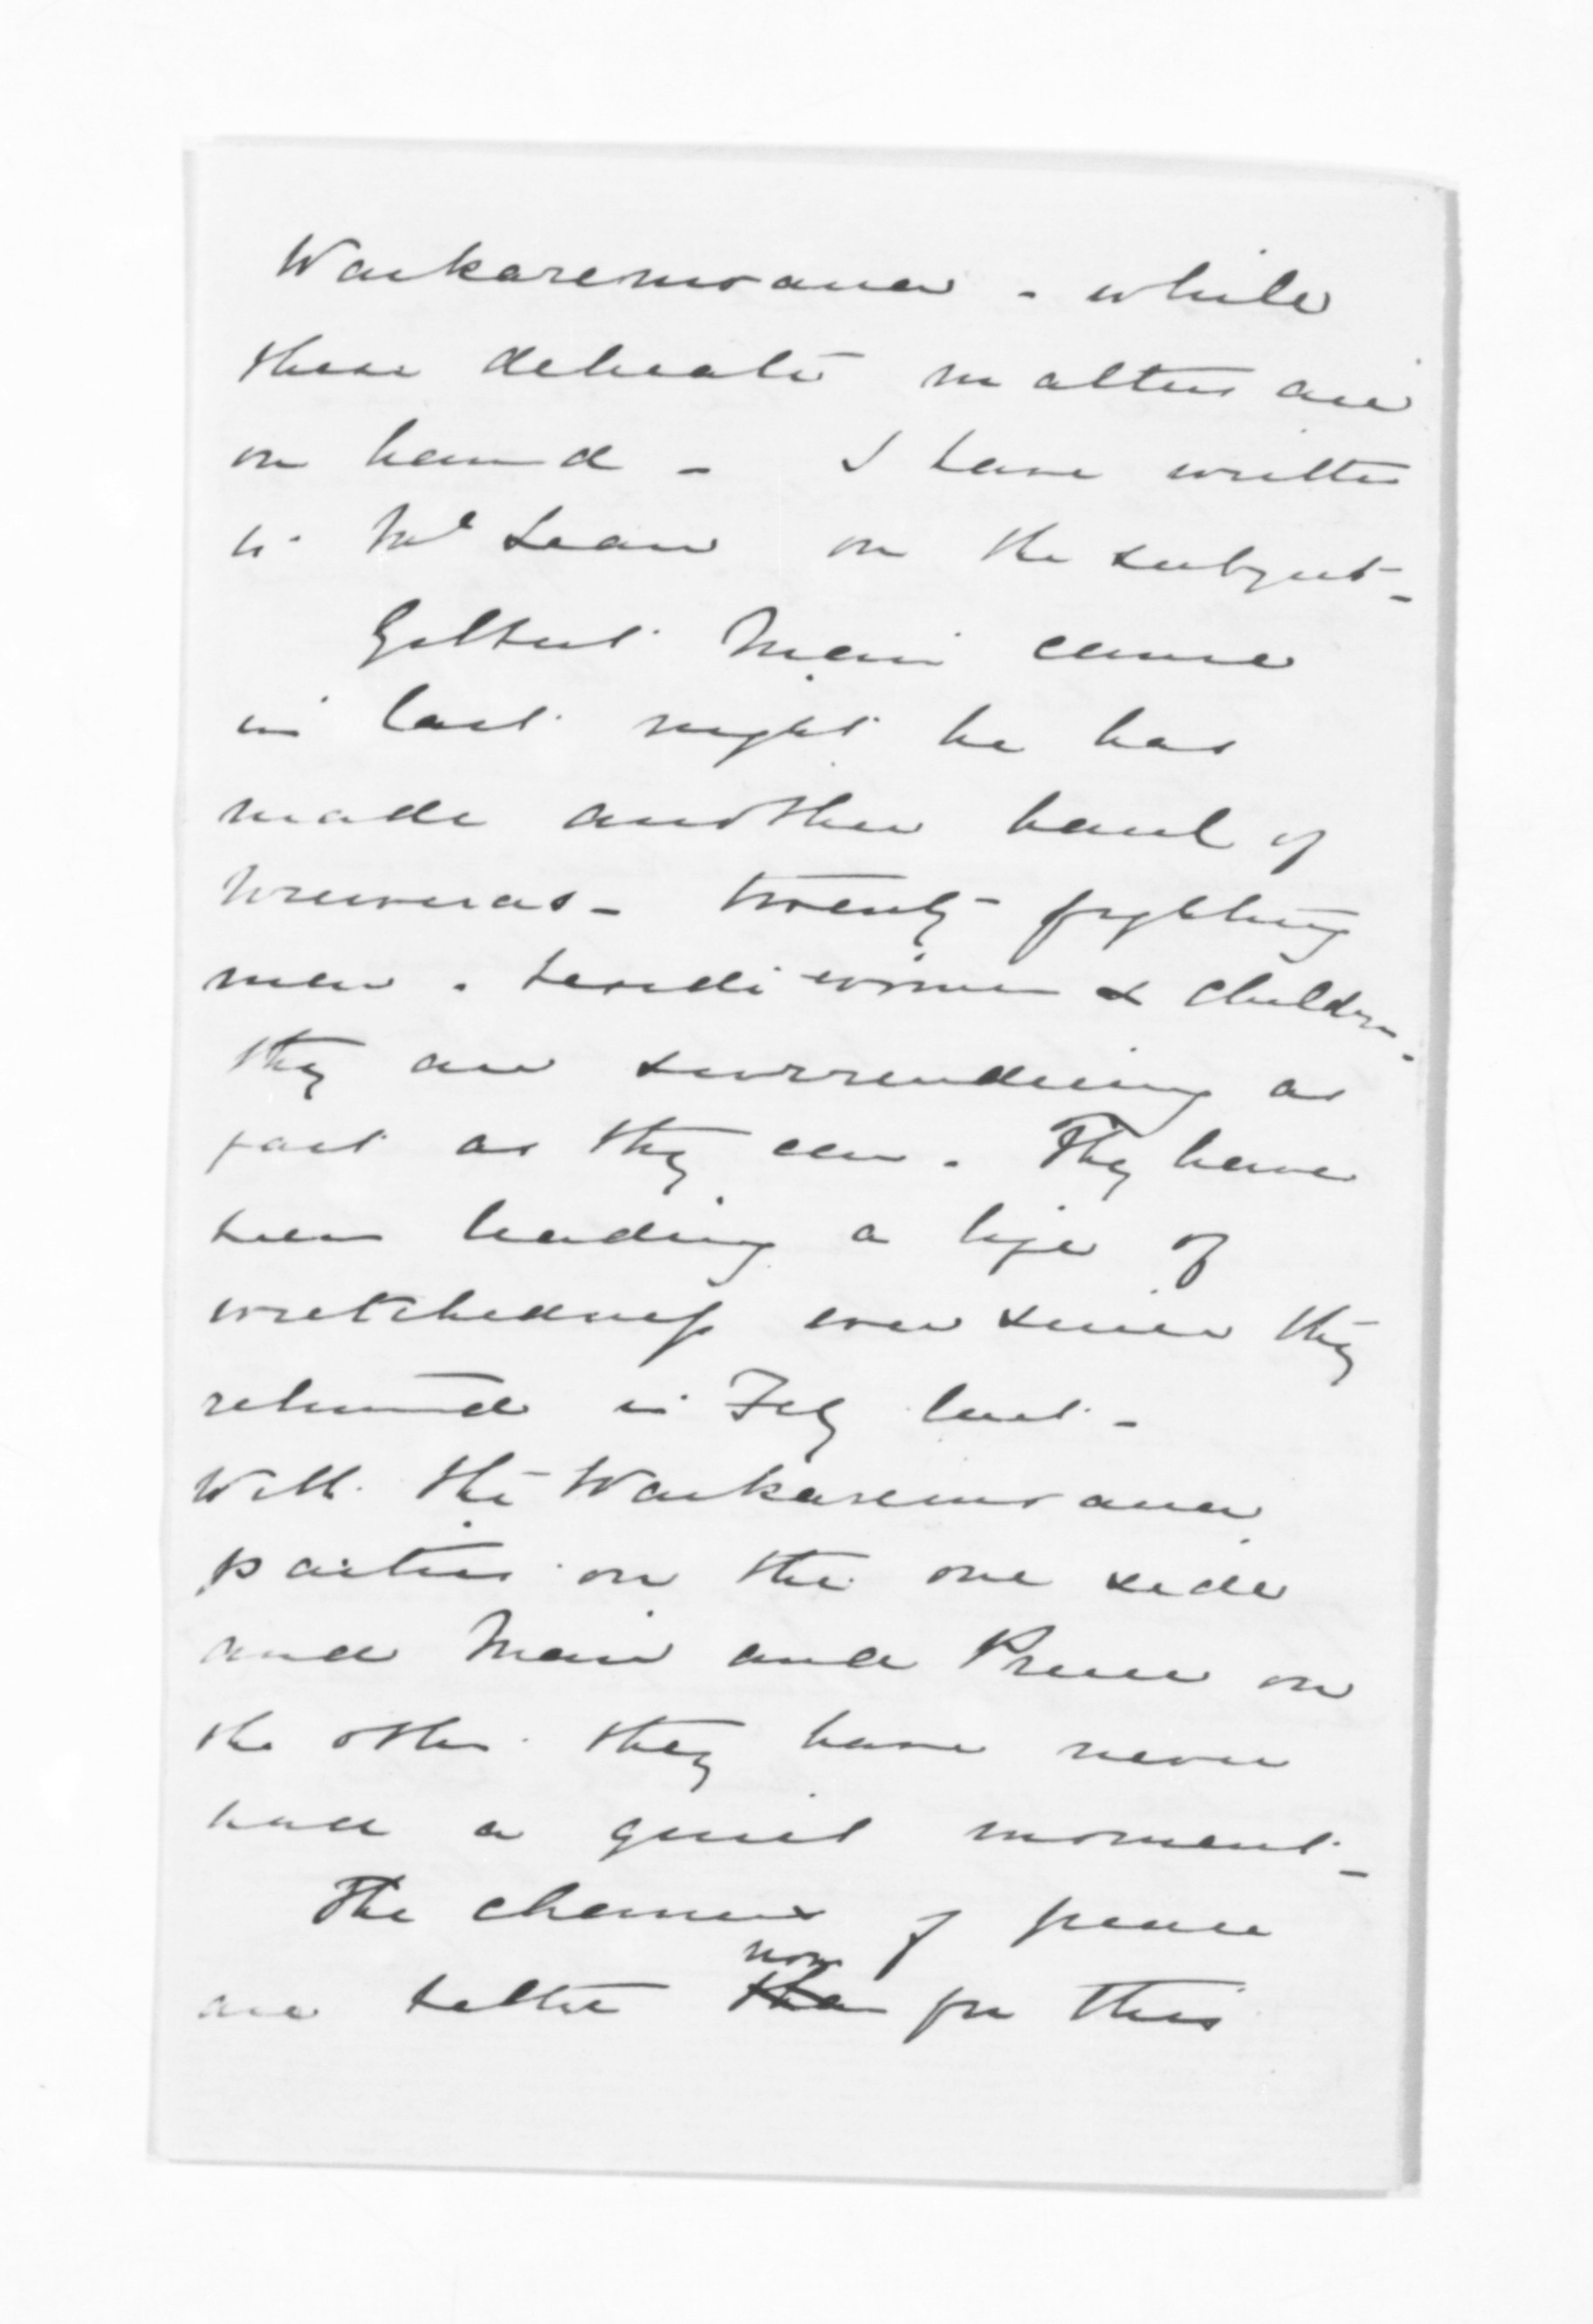 Waikaremoana - while
these delicate matters are
on hand - I have written
to McLean on the subject -
Gilbert Mair came
in last night he has
made another haul of
Ureweras - twenty fighting
men. besides women & children.
they are surrendering as
fast as they can. They have
been leading a life of
wretchedness ever since they
returned in Feby last -
With the Waikaremoana
parties on the one side
and Mair and Preece on
the other. they have never
had a quiet moment -
The chances of peace
now
are better for this